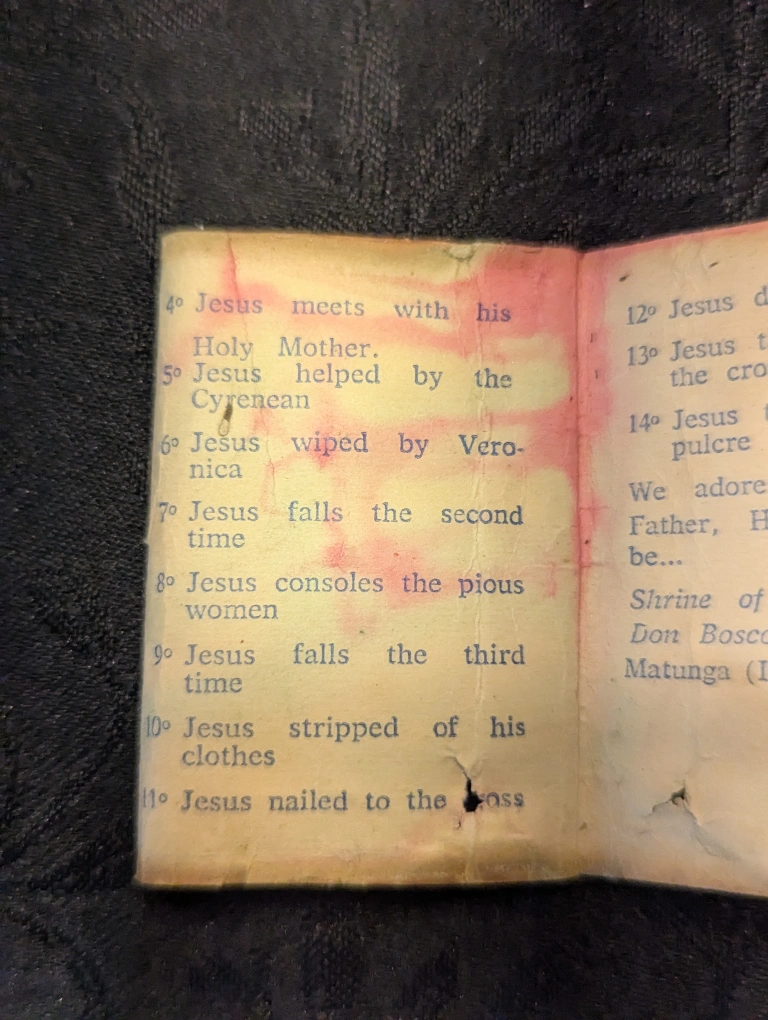 4º Jesus meets with his
Holy Mother.
5º Jesus helped by the
Cyrenean
6º Jesus wiped by Vero-
nica
7º Jesus falls the second
time
8º Jesus consoles the pious
women
9º Jesus falls the third
time
10º Jesus stripped of his
clothes
11º Jesus nailed to the
12º Jesus
13º Jesus
the
14º Jesus
pulcre
We adore
Father,
be...
Shrine of
Don Bosco
Matunga